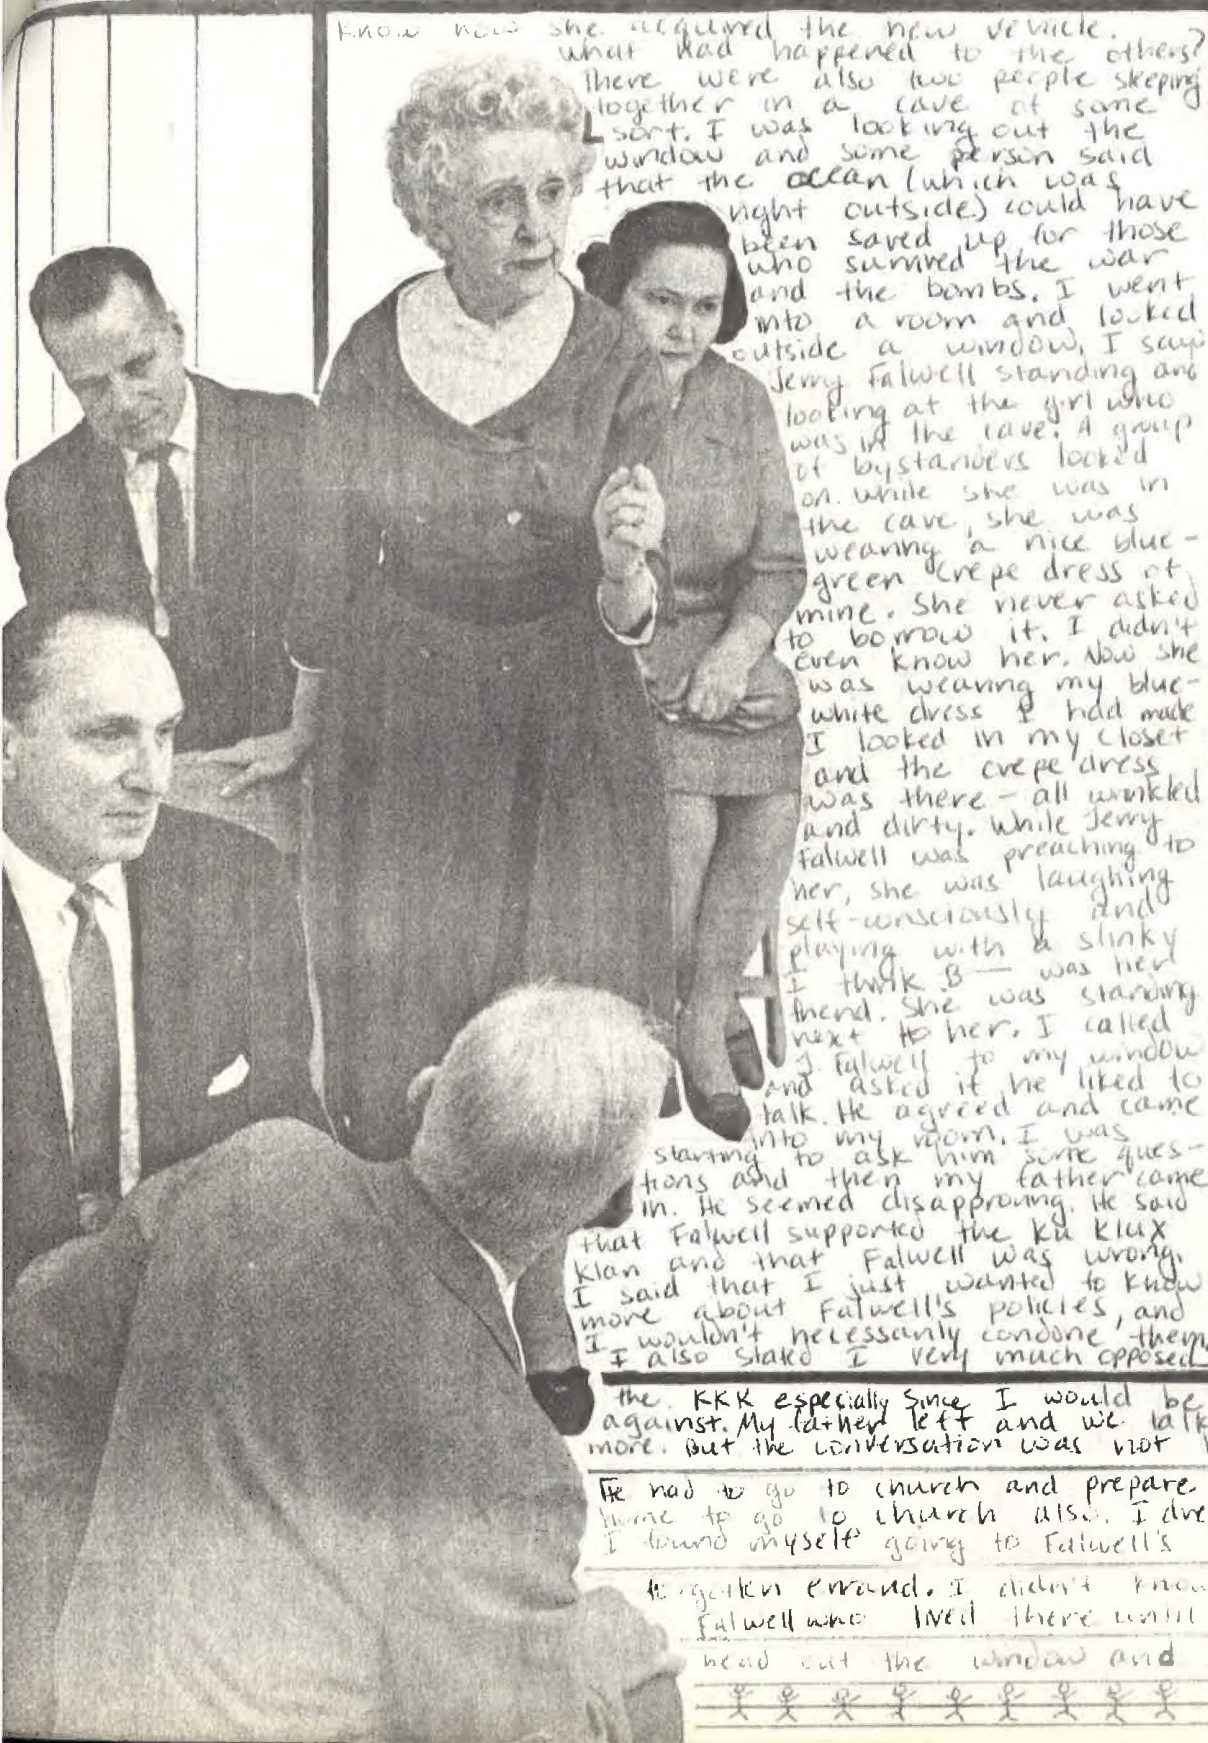 Know how she acquired the new vehicle.
what had happened to the others?
There were also two people sleeping
together in a cave of some
sort. I was looking out the
window and some person said
that the ocean (which was
right outside) could have
been saved up for those
who survived the war
and the bombs. I went
into a room and looked
outside a window. I saw
Jerry Falwell standing and
looking at the girl who
was in the cave. A group
of bystanders looked
on. While she was in
the cave, she was
wearing a nice blue-
green crepe dress of
mine. She never asked
to borrow it. I didn't
even know her. Now she
was wearing my blue-
white dress I had made
I looked in my closet
and the crepe dress
was there - all wrinkled
and dirty. While Jerry
Falwell was preaching to
her, she was laughing
self-consciously and
playing with a slinky
I think B— was her
friend. She was standing
next to her. I called
J. Falwell to my window
and asked if he liked to
talk. He agreed and came
into my room. I was
starting to ask him some ques-
tions and then my father came
in. He seemed disapproving. He said
that Falwell supported the Ku Klux
Klan and that Falwell was wrong.
I said that I just wanted to know
more about Falwell's policies, and
I wouldn't necessarily condone them.
I also stated I very much opposed
the KKK especially since I would be
against. My father left and we talk
more. But the conversation was not
He had to go to church and prepare.
home to go to church also. I
I found myself going to Falwell's
forgotten errand. I didn't know
Falwell who lived there until
head out the window and